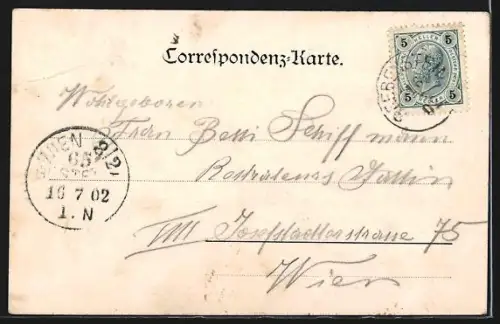 Correspondenz-Karte.
5 HELLER 5
5 5
Wohlgeboren
Frau Betti Schiffmann
Gattin
VIII Josefstädterstrasse 75
Wien
WIEN 8/2
65
16 7 02
1. N